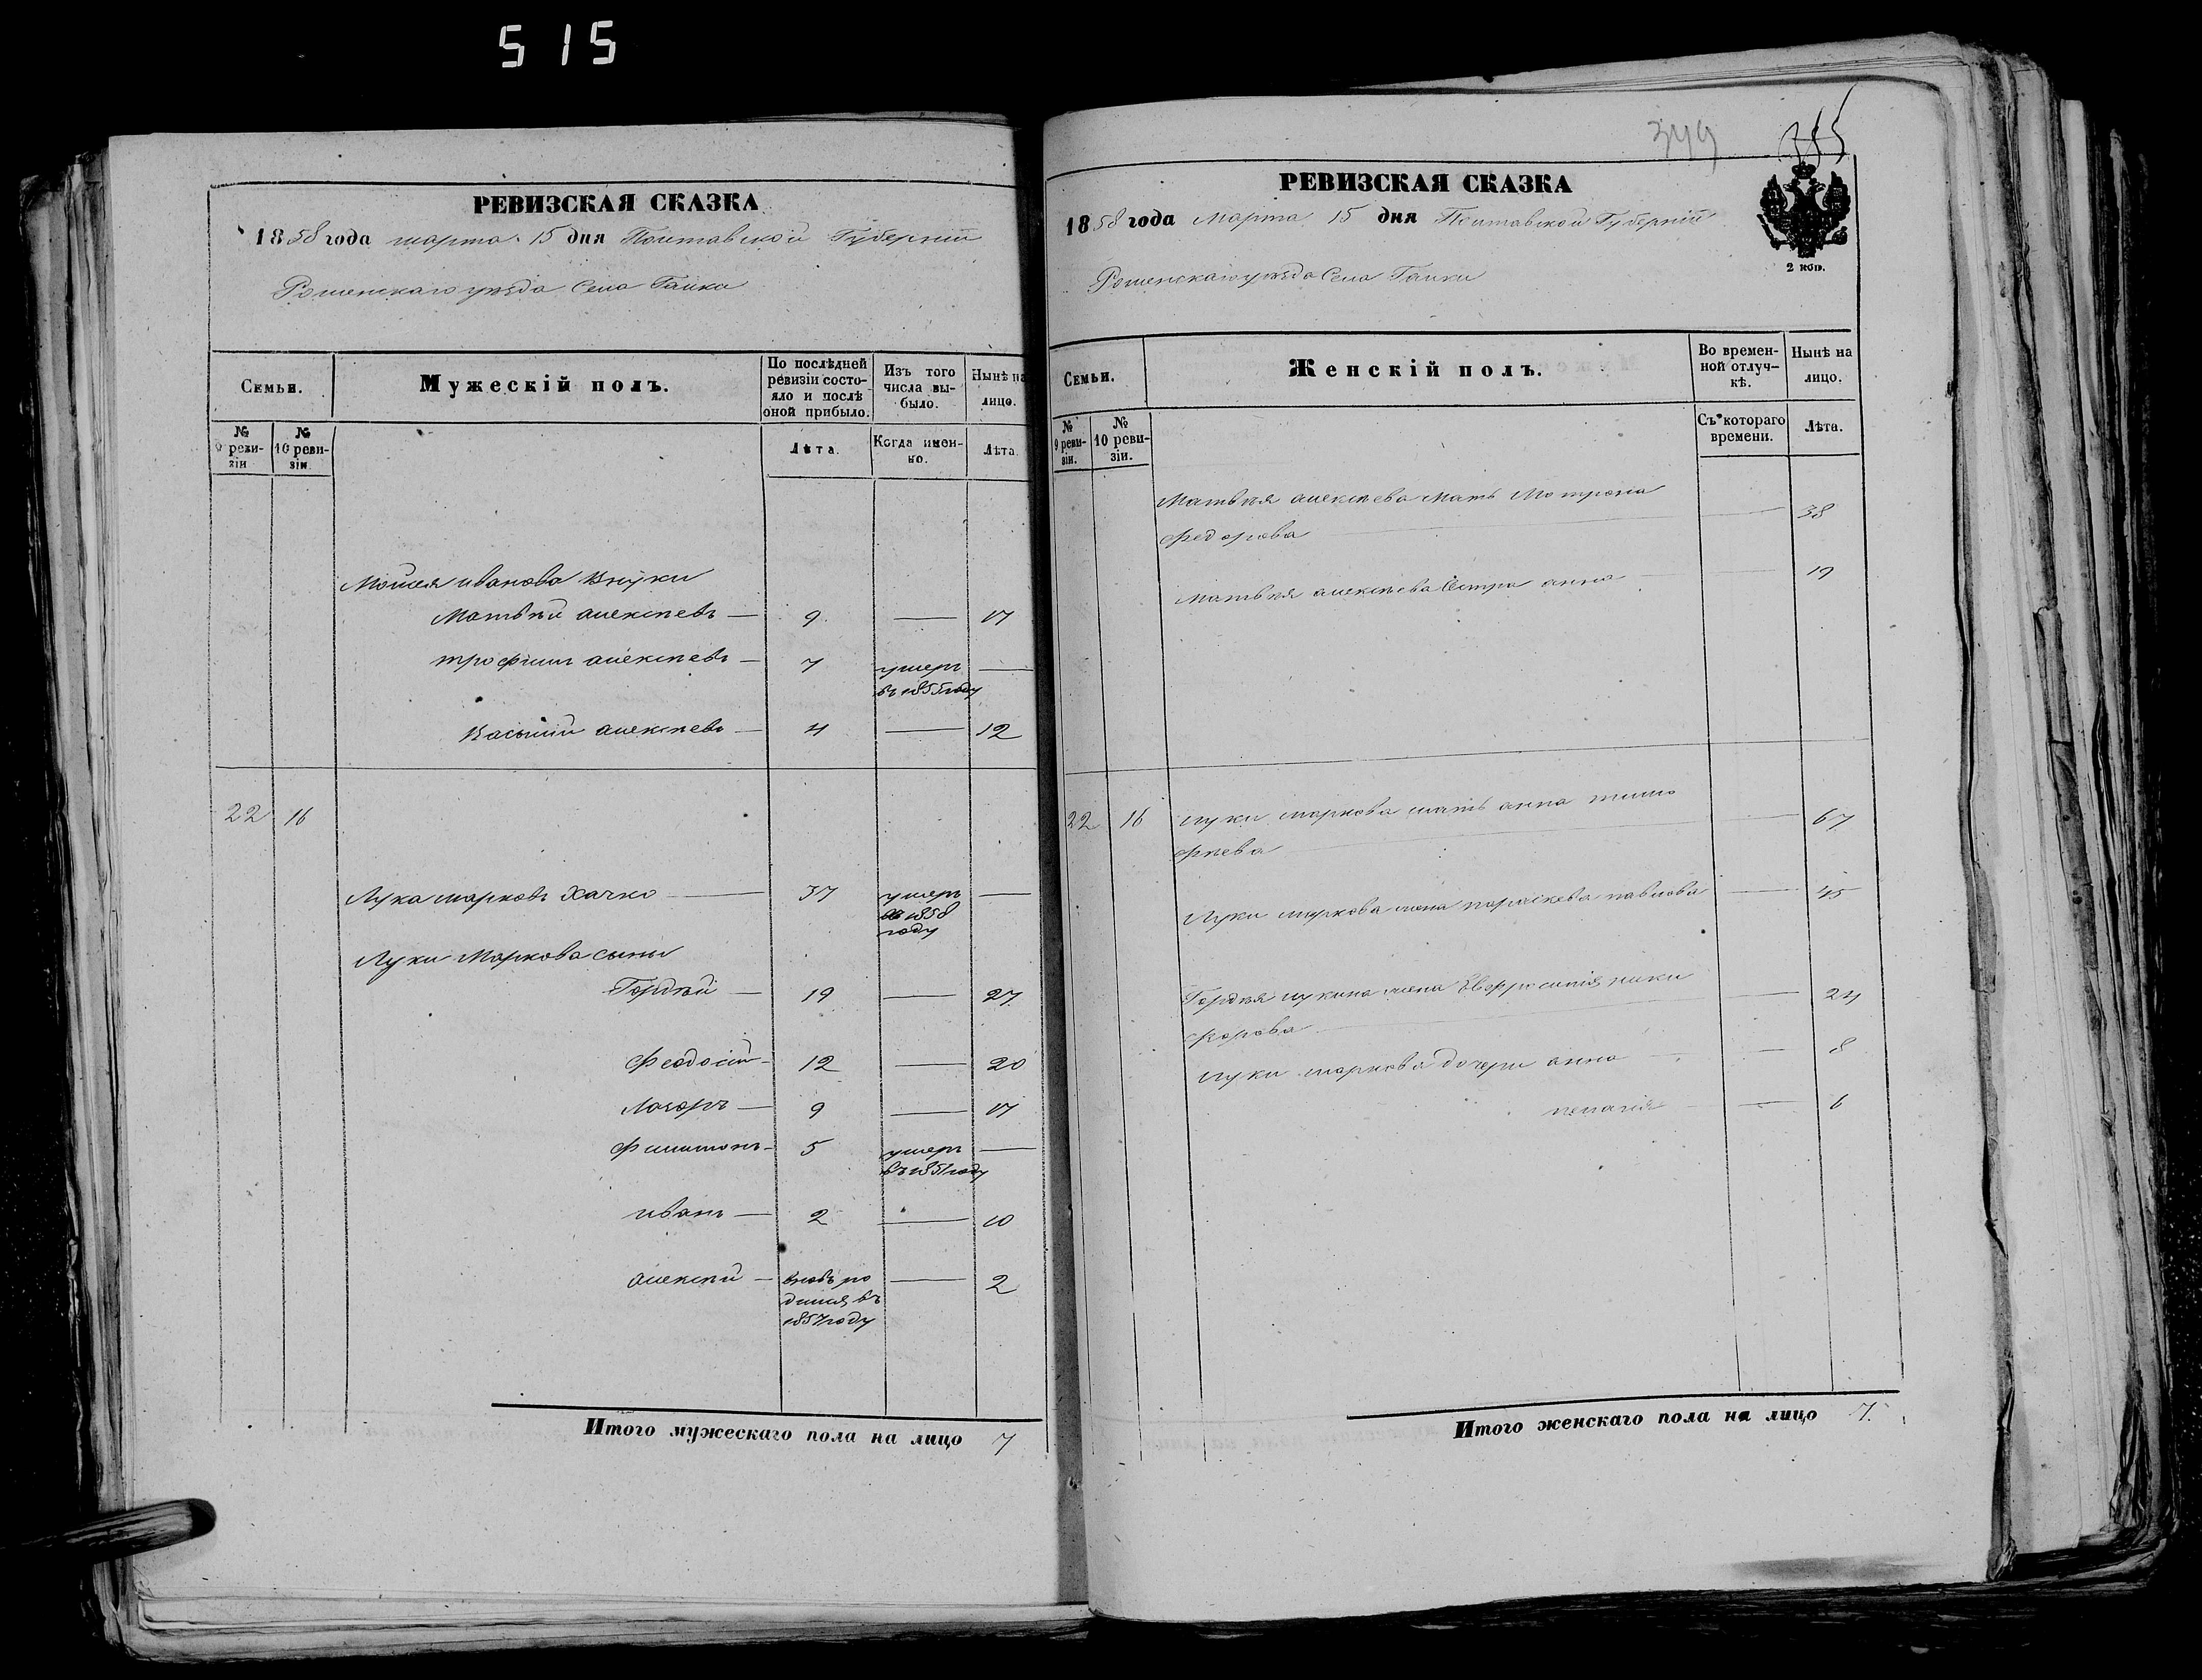 515
РЕВИЗСКАЯ СКАЗКА
1858 года марта 15 дня Полтавской Губерніи
Роменскаго уѣзда Села Галки
Семьи.
Мужескій полъ.
По послѣдней ревизіи состояло и послѣ оной прибыло.
Изъ того числа выбыло.
Нынѣ на лицо.
№ 9 ревизіи
№ 10 ревизіи.
Лѣта.
Когда именно.
Лѣта.
Мойсея иванова внуки
Матвѣй алексѣевъ — 9 — 17
трофимъ алексѣевъ — 7 умеръ —
въ 1855 году
Василій алексѣевъ — 4 — 12
22 16
Лука марковъ Хачко — 37 умеръ —
въ 1858
году
Луки Маркова сыны
Гордѣй — 19 — 27
Феодосій — 12 — 20
Лазоръ — 9 — 17
Филимонъ — 5 умеръ —
въ 1851 году
иванъ — 2 — 10
алексѣй — вновь ро — 2
дился въ
1857 году
Итого мужескаго пола на лицо 7
349 355
РЕВИЗСКАЯ СКАЗКА
1858 года Марта 15 дня Полтавской Губерніи
2 коп.
Роменскаго уѣзда Села Галки
Семьи.
Женскій полъ.
Во временной отлучкѣ.
Нынѣ на лицо.
№ 9 ревизіи.
№ 10 ревизіи.
Съ котораго времени.
Лѣта.
Матвѣя алексѣева мать Мотрона
федорова — 38
Матвѣя алексѣева Сестра анна — 19
22 16 Луки маркова мать анна тимо
фѣева — 67
Луки маркова жена параскева павлова — 45
Гордѣя лукина жена Евфросинія ники
форова — 24
Луки маркова дочери анна — 8
пелагія — 6
Итого женскаго пола на лицо 7.